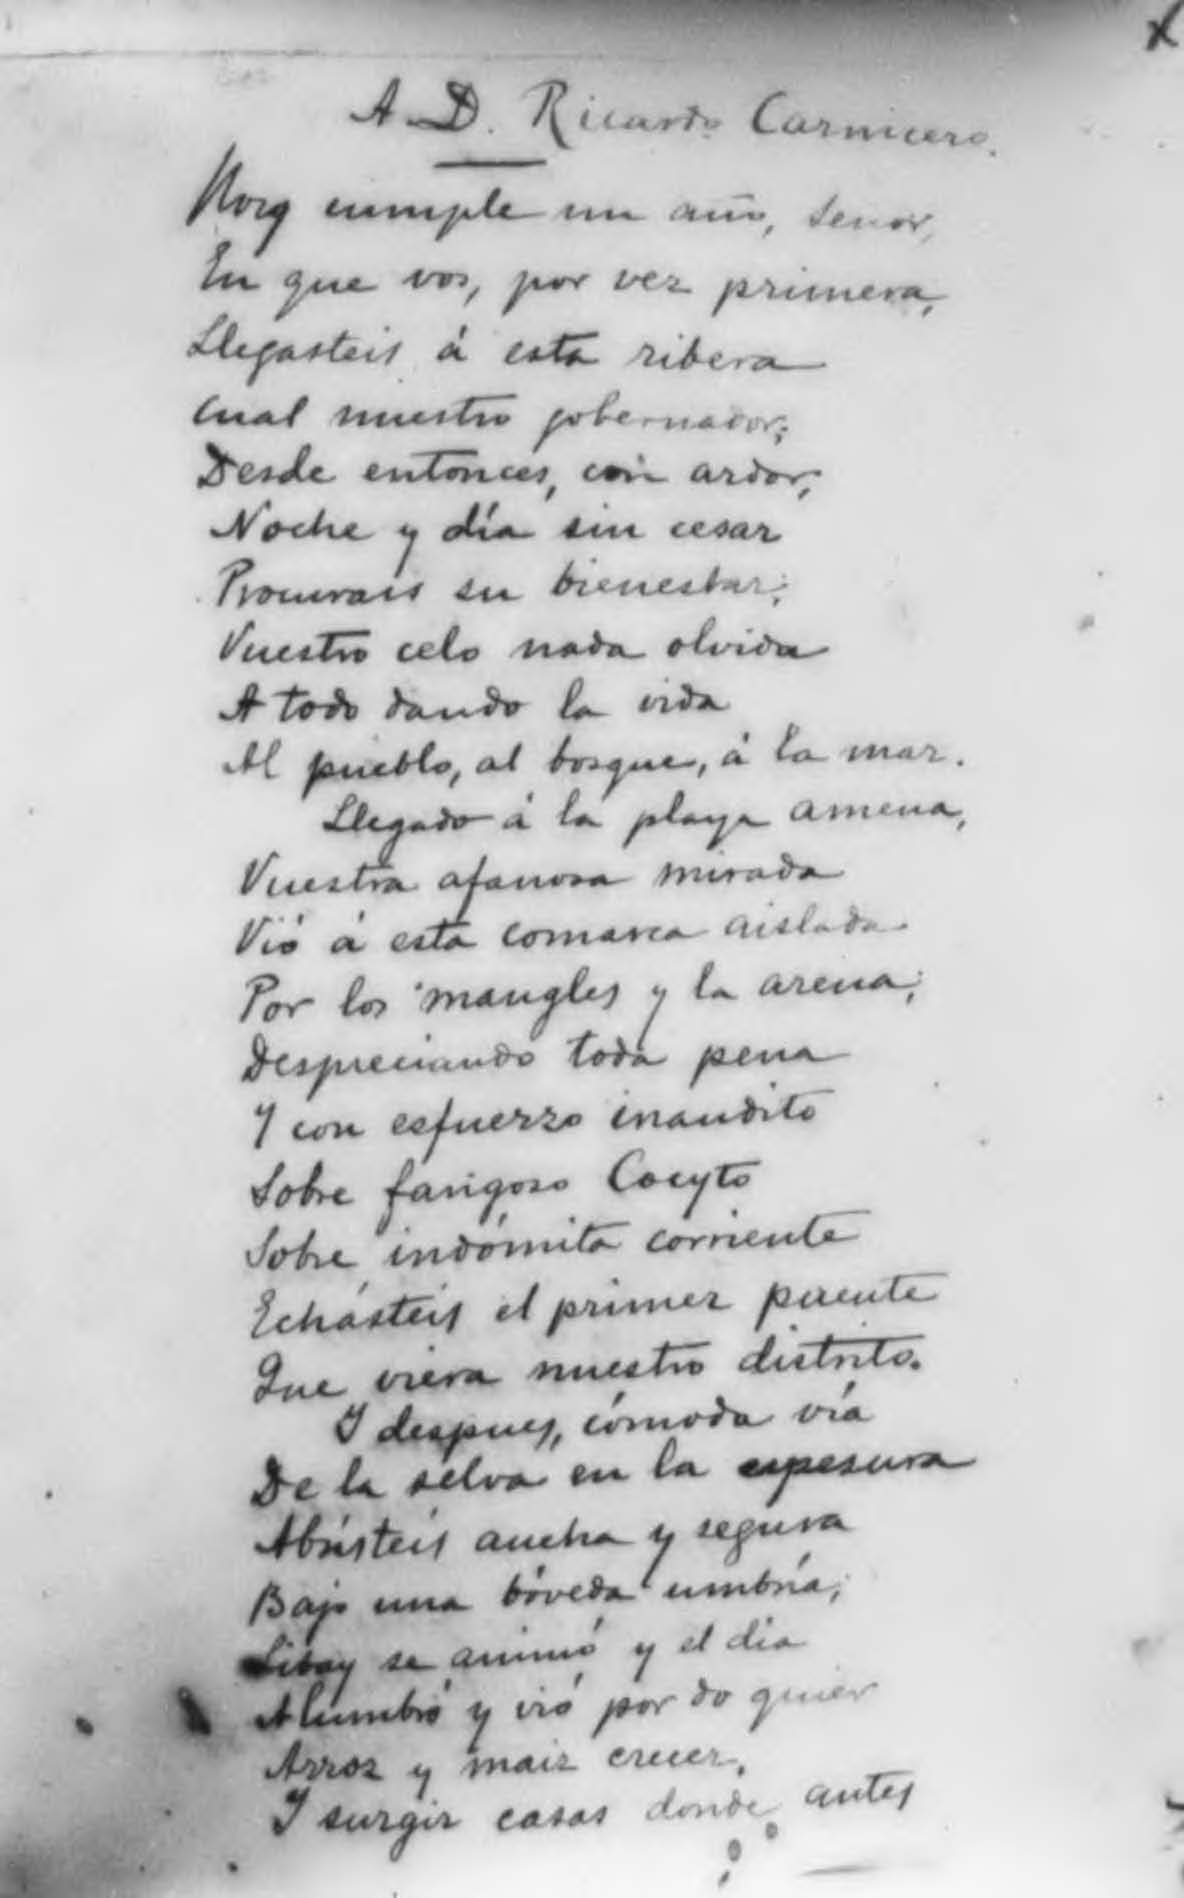 A D. Ricardo Carnicero.
Hoy cumple un año, Senor,
En que vos, por vez primera,
Llegasteis á esta ribera
Cual nuestro gobernador;
Desde entonces, con ardor,
Noche y día sin cesar
Procurais su bienestar;
Vuestro celo nada olvida
A todo dando la vida
Al pueblo, al bosque, á la mar.
Llegado á la playa amena,
Vuestra afanosa mirada
Vió á esta comarca aislada
Por los mangles y la arena;
Despreciando toda pena
Y con esfuerzo inaudito
Sobre fangoso Cocyto
Sobre indómita corriente
Echásteis el primer puente
Que viera nuestro distrito.
Y despues, cómoda vía
De la selva en la espesura
Abristeis ancha y segura
Bajo una bóveda umbría;
Libay se animó y el dia
Alumbró y vió por do quier
Arroz y maiz crecer,
Y surgir casas donde antes